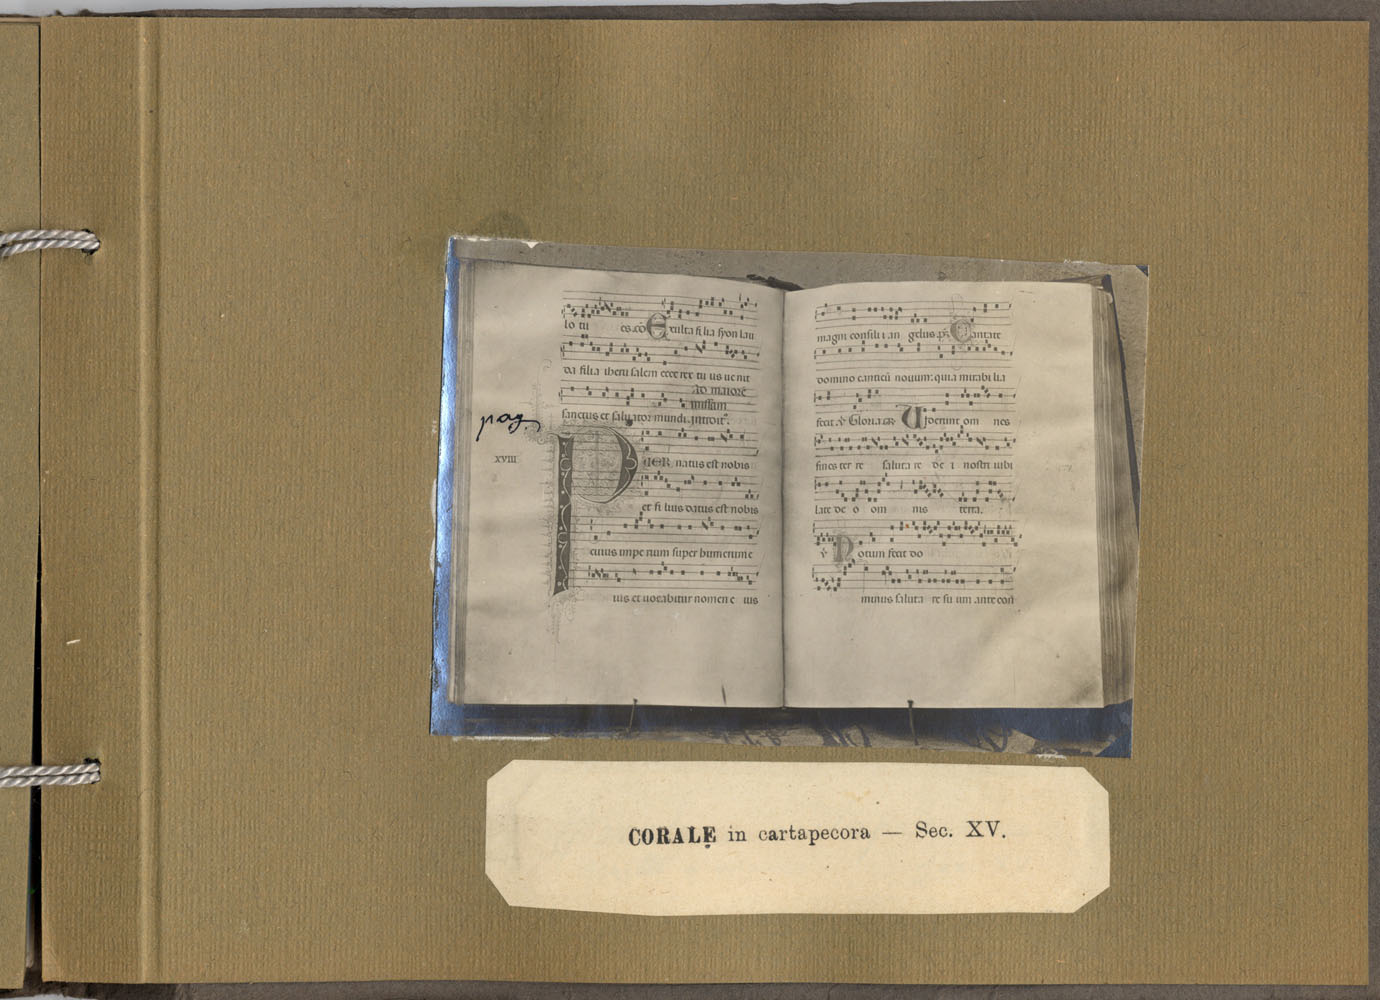 lo tu es. cō Exulta filia syon lau
da filia iherusalem ecce rex tuus uenit
Ad maiorē
missam
sanctus et saluator mundi. introit9.
pag.
XVIII
PUER natus est nobis
et filius datus est nobis
cuius imperium super humerum e
ius et uocabitur nomen e ius
magni consilii angelus. ps. Cantate
domino canticū nouum: quia mirabilia
fecit. ℣ Gloria. GR Uiderunt om nes
fines terre salutare dei nostri iubi
late deo omnis terra.
℣ Notum fecit do
minus salutare suum ante con
CORALE in cartapecora — Sec. XV.